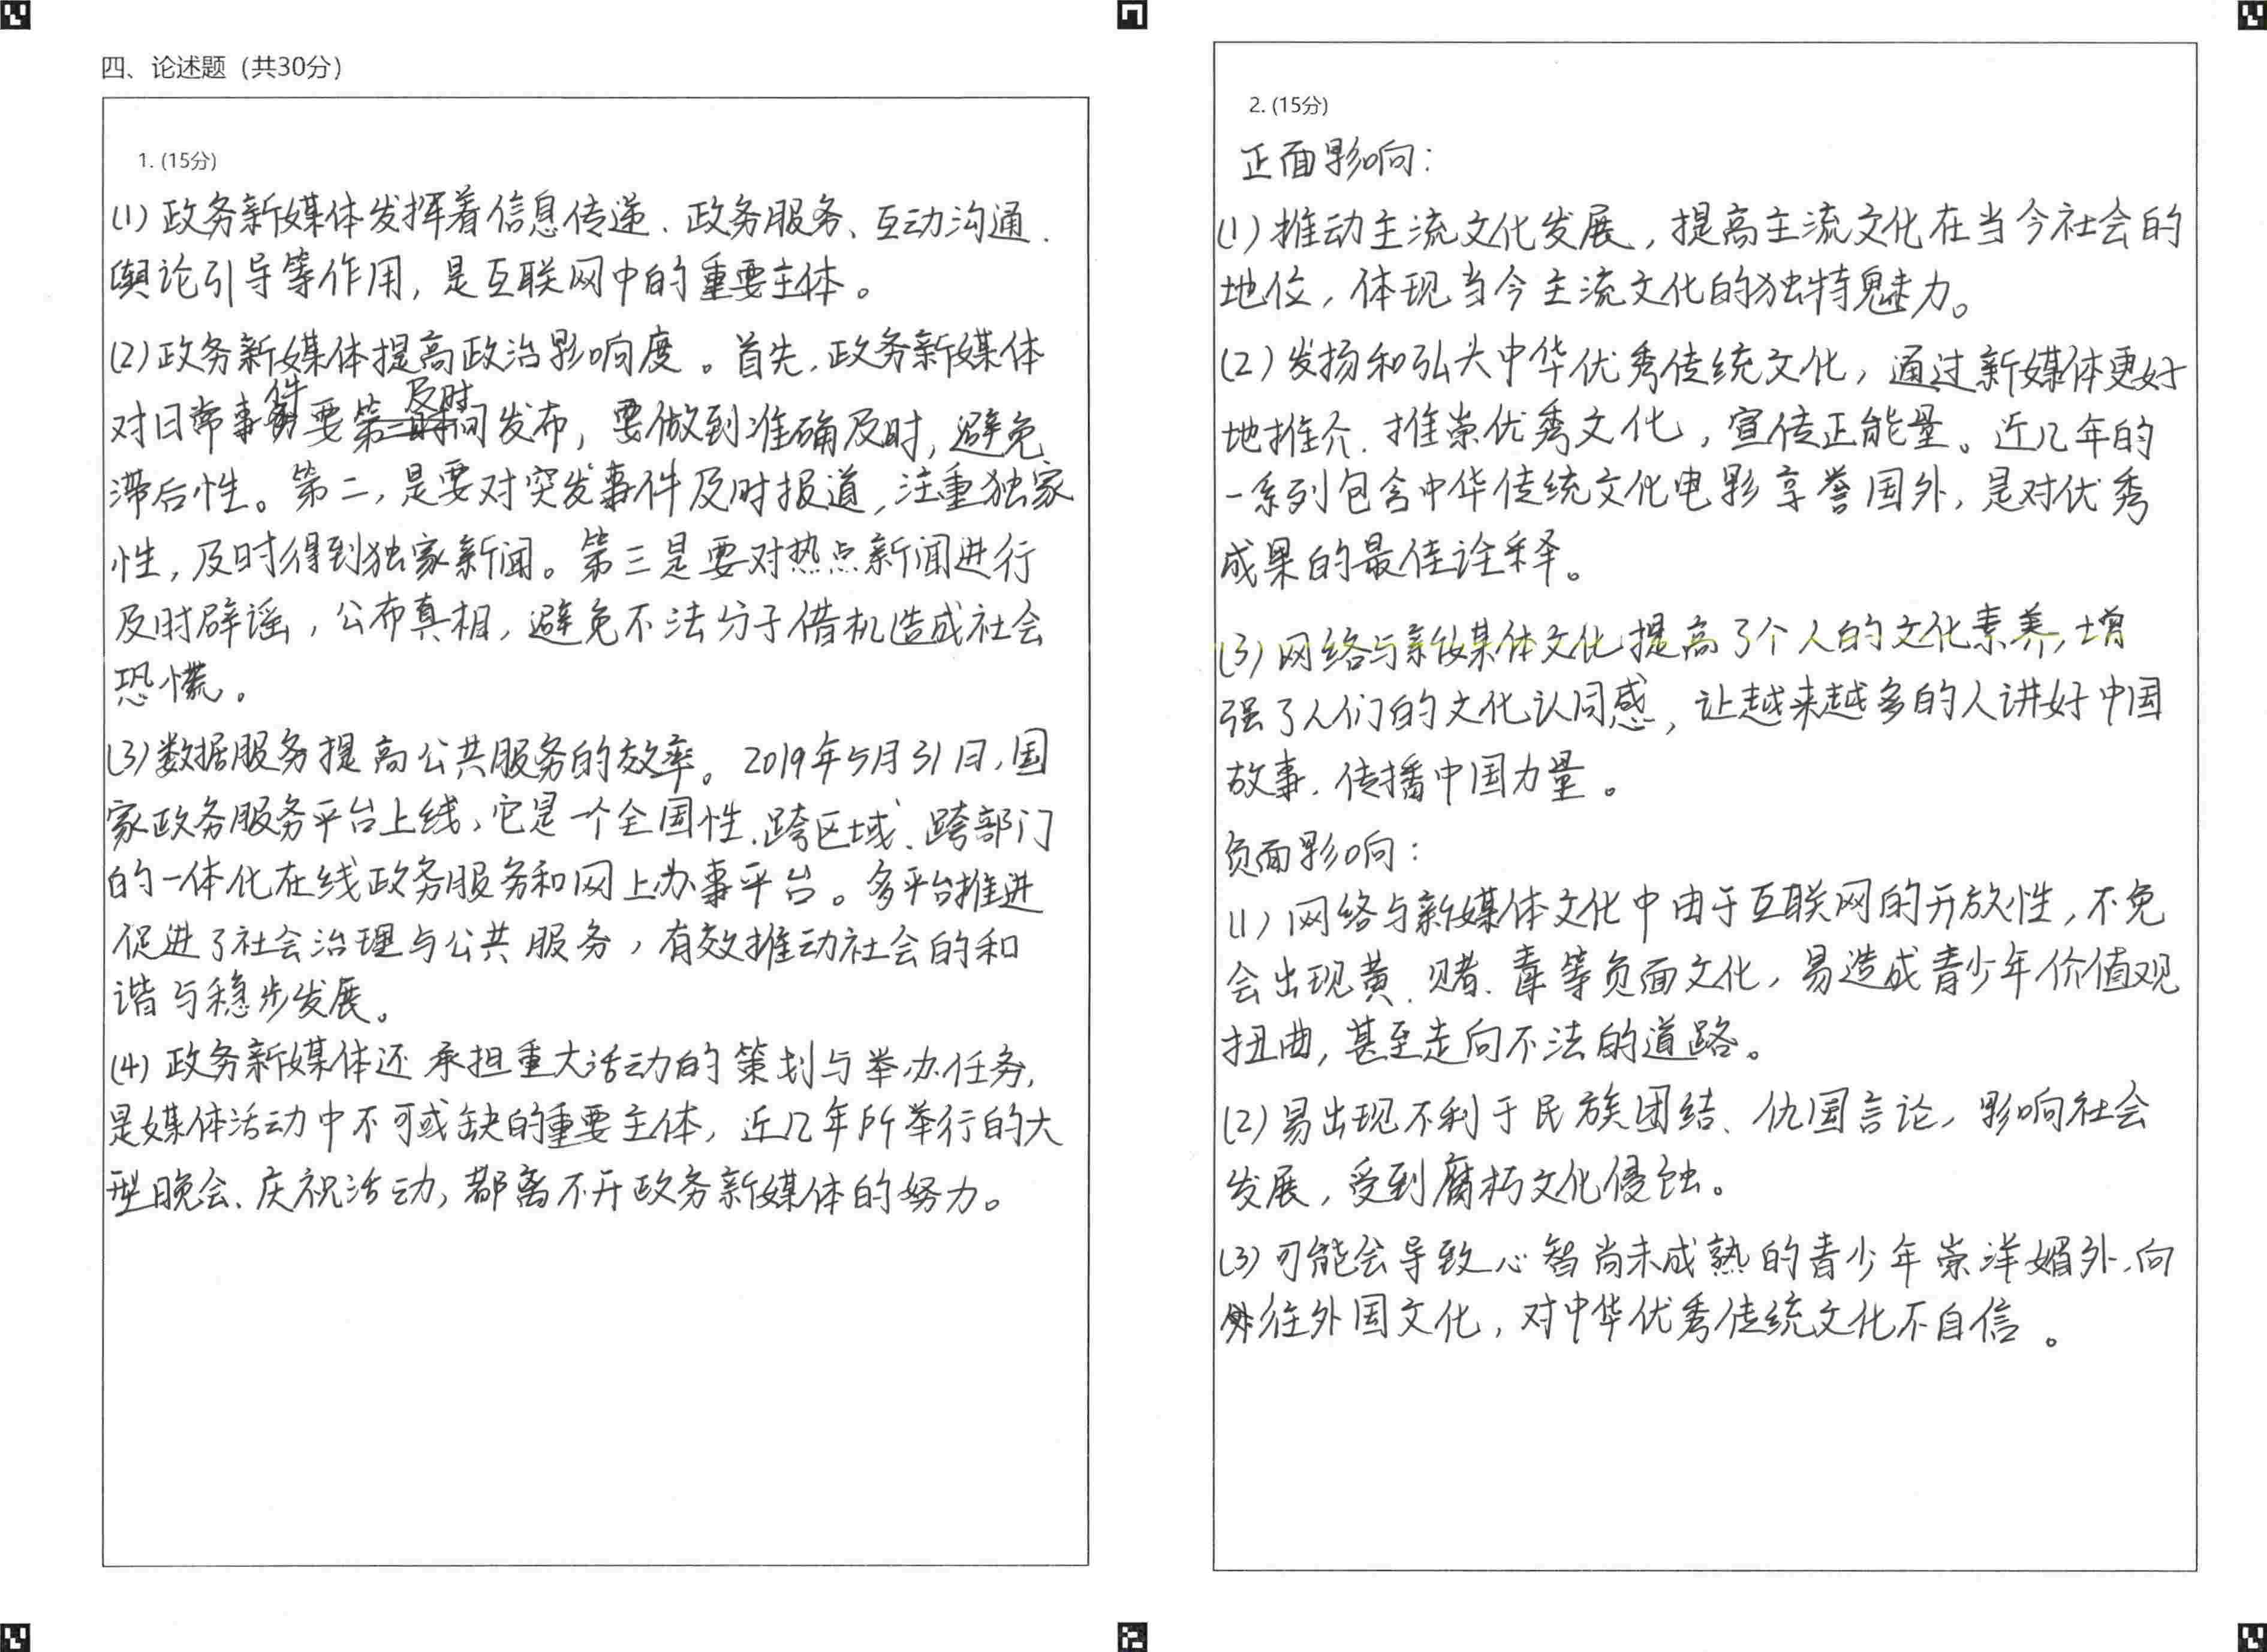 四、论述题（共30分）
1. (15分)
(1) 政务新媒体发挥着信息传递、政务服务、互动沟通、
舆论引导等作用，是互联网中的重要主体。
(2) 政务新媒体提高政治影响度。首先，政务新媒体
件 及时
对日常事要发布，要做到准确及时，避免
滞后性。第二，是要对突发事件及时报道，注重独家
性，及时得到独家新闻。第三是要对热点新闻进行
及时辟谣，公布真相，避免不法分子借机造成社会
恐慌。
(3) 数据服务提高公共服务的效率。2019年5月31日，国
家政务服务平台上线，它是一个全国性、跨区域、跨部门
的一体化在线政务服务和网上办事平台。多平台推进
促进了社会治理与公共服务，有效推动社会的和
谐与稳步发展。
(4) 政务新媒体还承担重大活动的策划与举办任务，
是媒体活动中不可或缺的重要主体，近几年所举行的大
型晚会、庆祝活动，都离不开政务新媒体的努力。
2. (15分)
正面影响：
(1) 推动主流文化发展，提高主流文化在当今社会的
地位，体现当今主流文化的独特魅力。
(2) 发扬和弘大中华优秀传统文化，通过新媒体更好
地推介、推崇优秀文化，宣传正能量。近几年的
一系列包含中华传统文化电影享誉国外，是对优秀
成果的最佳诠释。
(3) 网络与新媒体文化提高了个人的文化素养，增
强了人们的文化认同感，让越来越多的人讲好中国
故事、传播中国力量。
负面影响：
(1) 网络与新媒体文化中由于互联网的开放性，不免
会出现黄、赌、毒等负面文化，易造成青少年价值观
扭曲，甚至走向不法的道路。
(2) 易出现不利于民族团结、仇国言论，影响社会
发展，受到腐朽文化侵蚀。
(3) 可能会导致心智尚未成熟的青少年崇洋媚外、向
往外国文化，对中华优秀传统文化不自信。